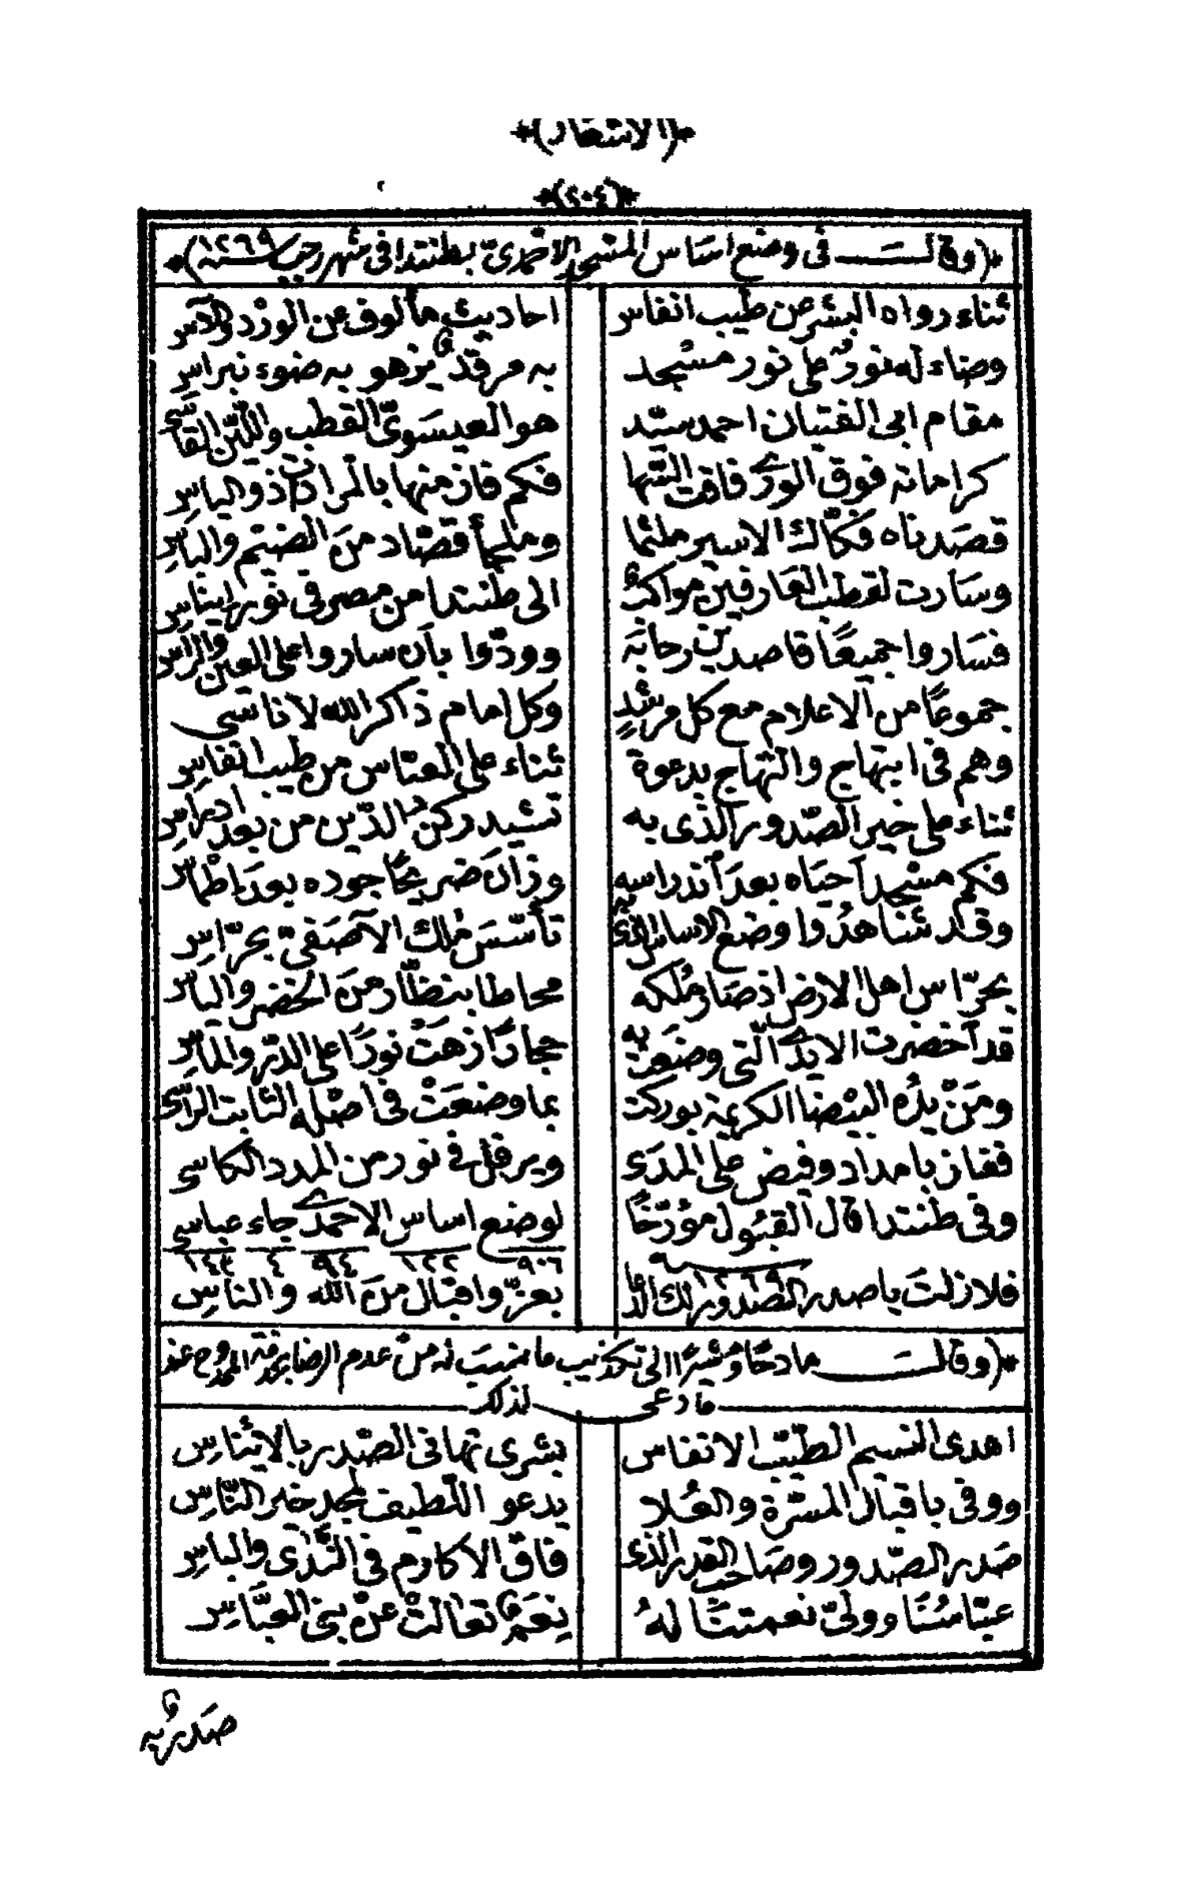 *(الاشعار)*
*(٢٠٤)*
*(وقلت في وضع اساس المسجد الاحمدىّ بطنتدا في شهر رجب سنة ١٢٦٩)*
ثناء رواه البشر عن طيب انفاس احاديث مألوف عن الورْد والآس
وضاء له نورٌ على نور مسجد به مرقدٌ يزهو به ضوء نبراسِ
مقام ابى الفتيان احمد سيّد هو العيسوىّ القطب واللّيّن القاسى
كراماته فوق الورى فاقت السُّها فكم فاز منها بالمرادات ذو الياسِ
قصدناه فكّاك الاسير ملثما وملجأ قصّاد منَ الضيْم والباسِ
وسارت لقطب العارفين مواكبٌ الى طنتدا من مصر فى نور ايناسِ
فساروا جميعًا قاصدين رحابَه وودّوا بأن ساروا على العين والراسِ
جموعًا من الاعلام مع كل مرشدٍ وكل امام ذاكر الله لا ناسى
وهم فى ابتهاج والتهاج بدعوة ثناء على العبّاس من طيب انفاسِ
ثناء على خير الصّدور الذى به تشيد ركن الدّين من بعد ادراسِ
فكم مسجد آحياه بعدَ آندراسه وزان ضريحًا جوده بعدَ إطماسِ
وقد شاهدُوا وضع الاساس الذى به تأسّسَ مُلك الآصَفىّ بحرّاسِ
بحرّاس اهل الارض اذ صار مُلكه محاطا بنظّار منَ الخضر والياسِ
قد آخضرت الايدى الّتى وضعت به حجارًا زهتْ نورًا على الدّر والماسِ
ومَنْ يدُه البيْضا الكريمة بوركت بما وضعَتْ فى اصْله الثابت الرّاسى
ففاز بامداد وفيض على المدَى ويرفل فى نور من المدد الكاسى
وفى طنتدا قال القبُول مؤرّخًا لوضع اساس الاحمدى جاء عباسى
٩٠٦ ١٢٢ ٩٤ ٤ ١٤٣
سنة ١٢٦٩
فلا زلتَ يا صدر الصّدور لك بعزّ واقبال منَ الله والناسِ
*(وقلت مادحًا ومشيرًا الى تكذيب ما نسبَ له منْ عدم الرضا بخدمة الممدوح عند
ما دعى لذلك
اهدى النسيم الطيّب الانفاس بشرى تهانى الصّدر بالايناسِ
ووفى باقبال المسرّة والعُلا يدعو اللّطيف لمجد خير النّاسِ
صَدر الصّدور وصَاحب القدر الذى فاقَ الاكارم فى النّدَى والباسِ
عبّاسُنَا وولىّ نعمتنَا لهُ نِعَمٌ تعالتْ عنْ بنى العبَّاسِ
صَدرٌ به